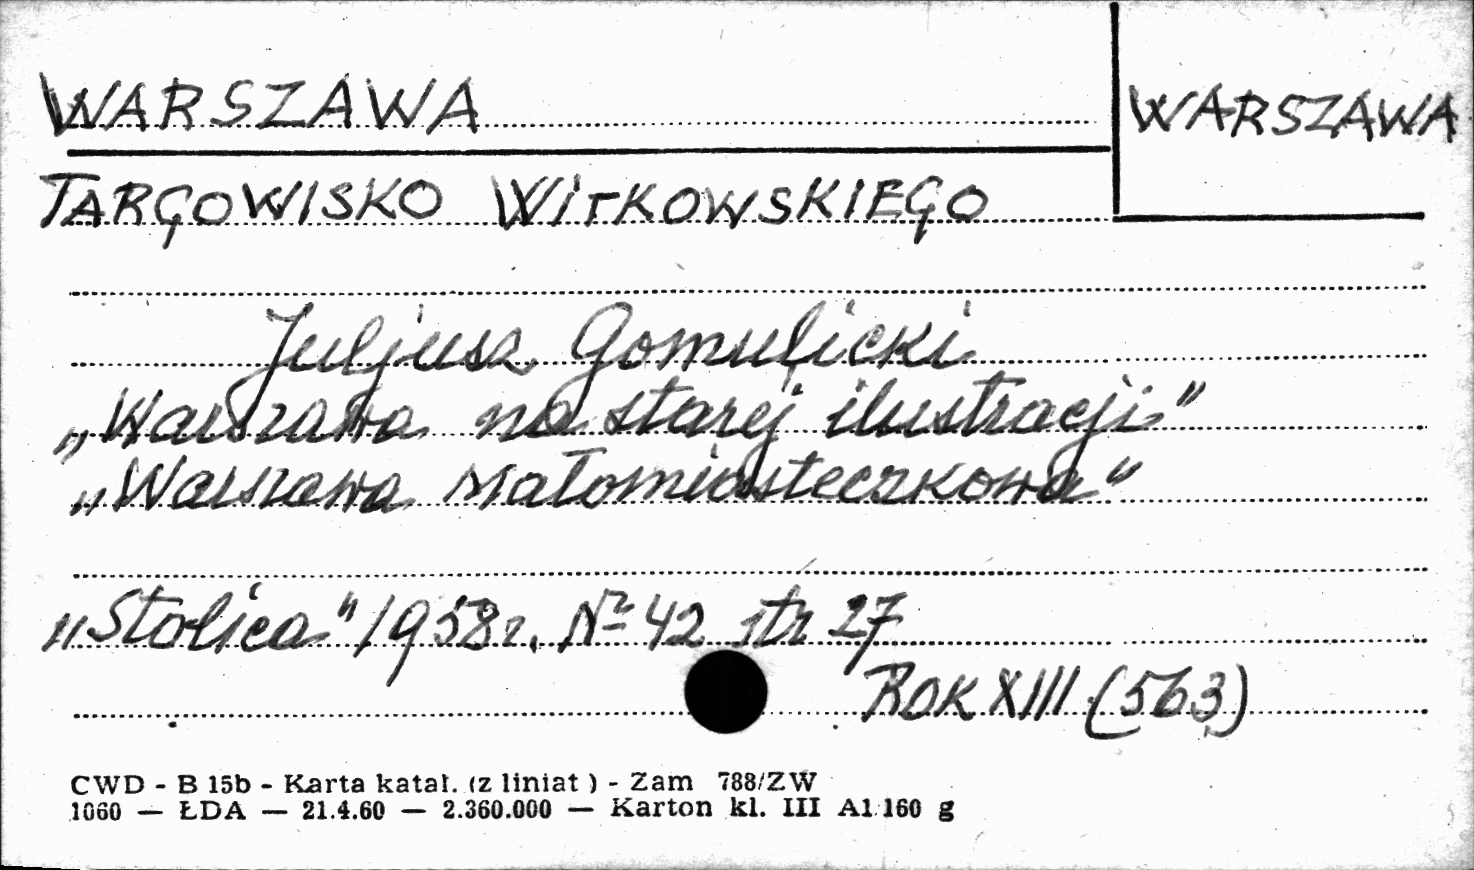 WARSZAWA
WARSZAWA
TARGOWISKO WITKOWSKIEGO
Juljusz Gomulicki
„Warszawa na starej ilustracji"
„Warszawa Małomiasteczkowa"
„Stolica" 1958r. № 42 str 27
ROK XIII (563)
CWD - B 15b - Karta katal. (z liniat ) - Zam 788/ZW
1060 — ŁDA — 21.4.60 — 2.360.000 — Karton kl. III A1 160 g